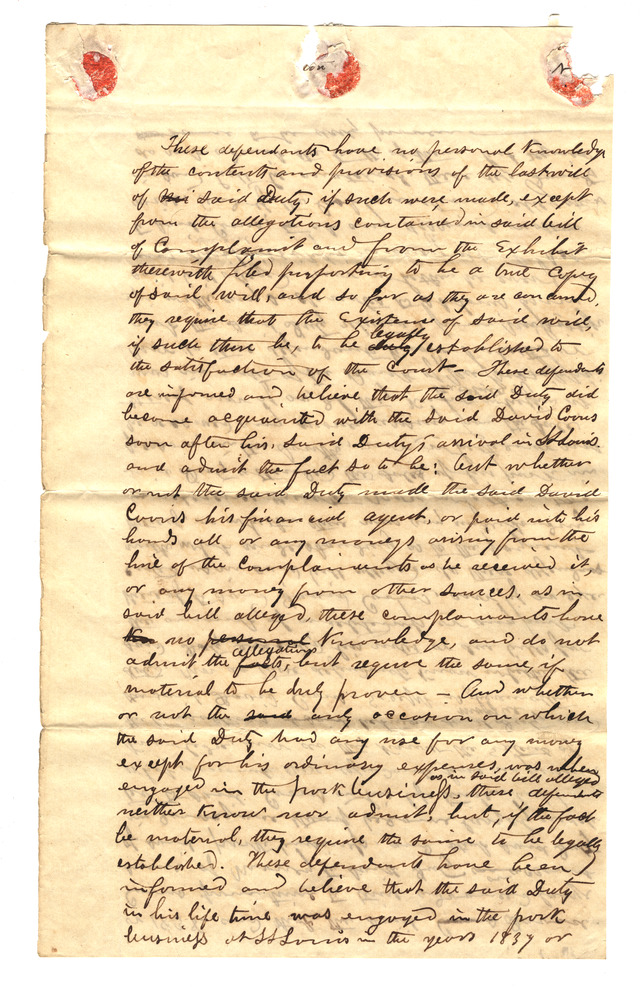 con
These defendants have no personal Knowledge
of the contents and provisions of the last will
of said Duty, if such were made, except
from the allegations contained in said bill
of Complaint and from the Exhibit
therewith filed purporting to be a true Copy
of said will, and so far as they are concerned,
they require that the Existence of said will
if such there be, to be legally established to
the satisfaction of the Court - These defendants
are informed and believe that the said Duty did
become acquainted with the said David Coons
soon after his, said Duty's arrival in St Louis
and admit the fact so to be; but whether
or not the said Duty made the said David
Coons his financial agent, or paid into his
hands all or any moneys arising from the
hire of the Complainants as he received it,
or any money from other sources, as in
said bill alleged, these complainants have
no personal Knowledge, and do not
admit the allegations, but require the same, if
material to be duly proven - And whether
or not the said only occasion on which
the said Duty had any use for any money
except for his ordinary expenses, was when
engaged in the pork business, as in said bill alleged, these defendants
neither Know nor admit, but, if the fact
be material, they require the same to be legally
established. These defendants have been
informed and believe that the said Duty
in his life time was engaged in the pork
business at St Louis in the years 1837 or